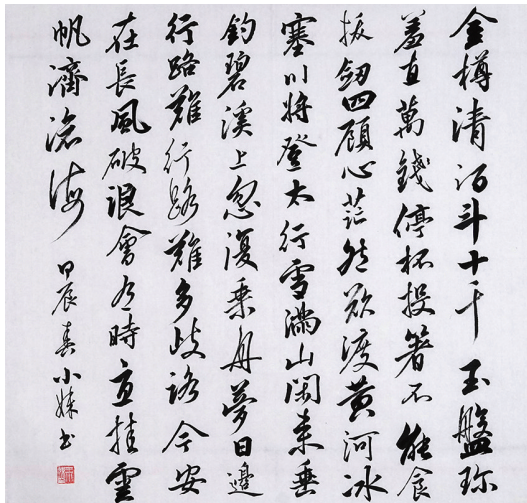 金樽清酒斗十千玉盤珍
羞直萬錢停杯投箸不能食
拔劍四顧心茫然欲渡黄河冰
塞川將登太行雪滿山閑來垂
釣碧溪上忽復乘舟夢日邊
行路難行路難多歧路今安
在長風破浪會有時直挂雲
帆濟滄海
甲辰春小妹书